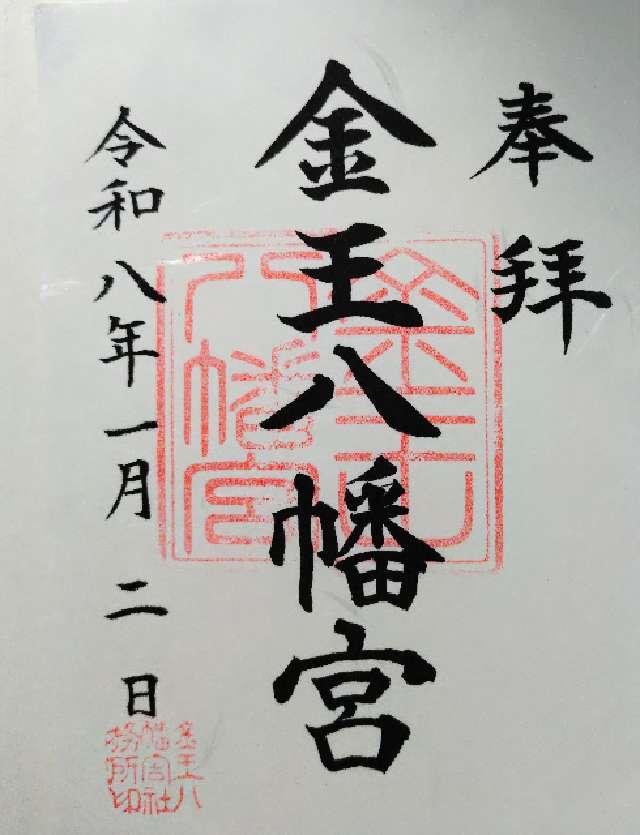 奉拝
金王八幡宮
令和八年一月二日
金王八幡宮
金王八幡宮社務所印